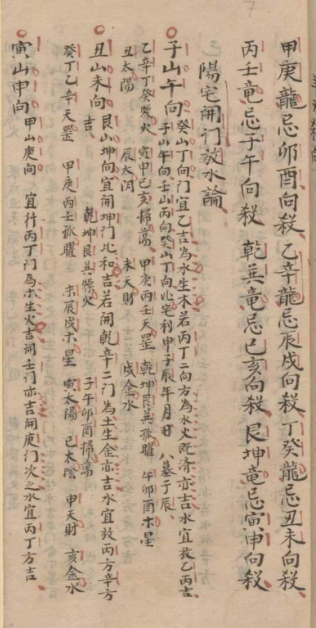 甲庚龍忌卯酉向殺 乙辛龍忌辰戌向殺 丁癸龍忌丑未向殺
丙壬竜忌子午向殺 乾巽竜忌巳亥向殺 艮坤竜忌寅申向殺
陽宅開门放水論
子山午向 癸山丁向门宜乙吉為水生木若丙丁二向方為水火既済亦吉水宜放乙丙吉
子山午向壬山丙向癸山丁向此宅利申子辰年月日 八墓子辰
乙辛丁癸𤇆火 寅申巳亥掃蕩 甲庚丙壬天罡 乾坤艮巽孤曜 午卯酉木星
丑太陽 辰太阴 未天財 戌金水
丑山未向 吉 艮山坤向宜開坤门比和吉若開乾辛二门為土生金亦吉水宜放丙方辛方
乾坤艮巽𤇆火 子午卯酉掃蕩
癸丁乙辛天罡 甲庚丙壬孤曜 未辰戌木星 寅太陽 巳太陰 申天財 亥金水
寅山申向 甲山庚向 宜行丙丁门為木生火吉開壬门亦吉開庚门次之水宜丙丁方吉